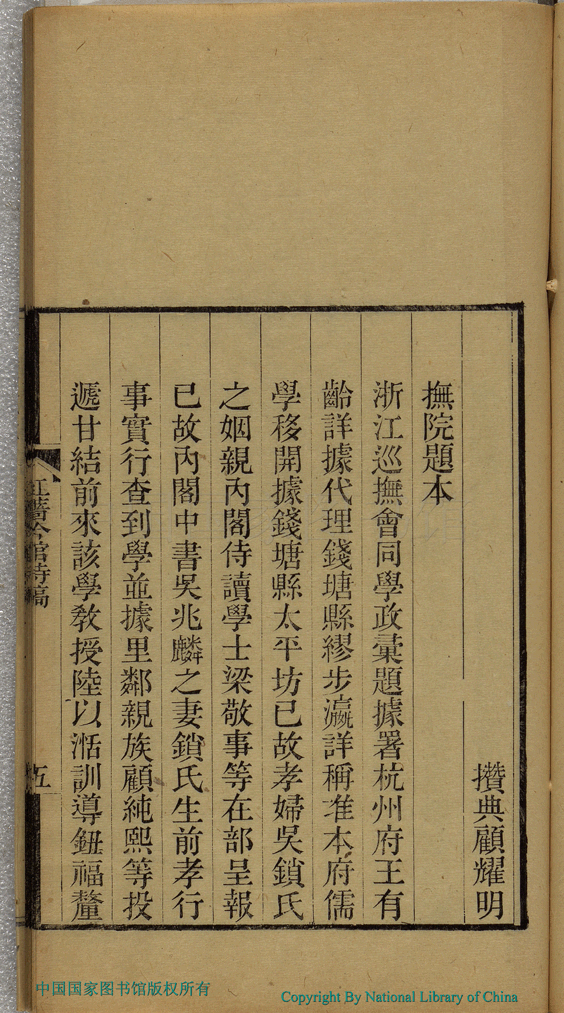 攢典顧耀明
撫院題本
浙江巡撫會同學政彙題據署杭州府王有
齡詳據代理錢塘縣繆步瀛詳稱准本府儒
學移開據錢塘縣太平坊已故孝婦吳鎖氏
之姻親內閣侍讀學士梁敬事等在部呈報
已故內閣中書吳兆麟之妻鎖氏生前孝行
事實行查到學並據里鄰親族顧純熙等投
遞甘結前來該學教授陸以湉訓導鈕福釐
紅蕉吟館詩稿
五
中国国家图书馆版权所有
Copyright By National Library of China